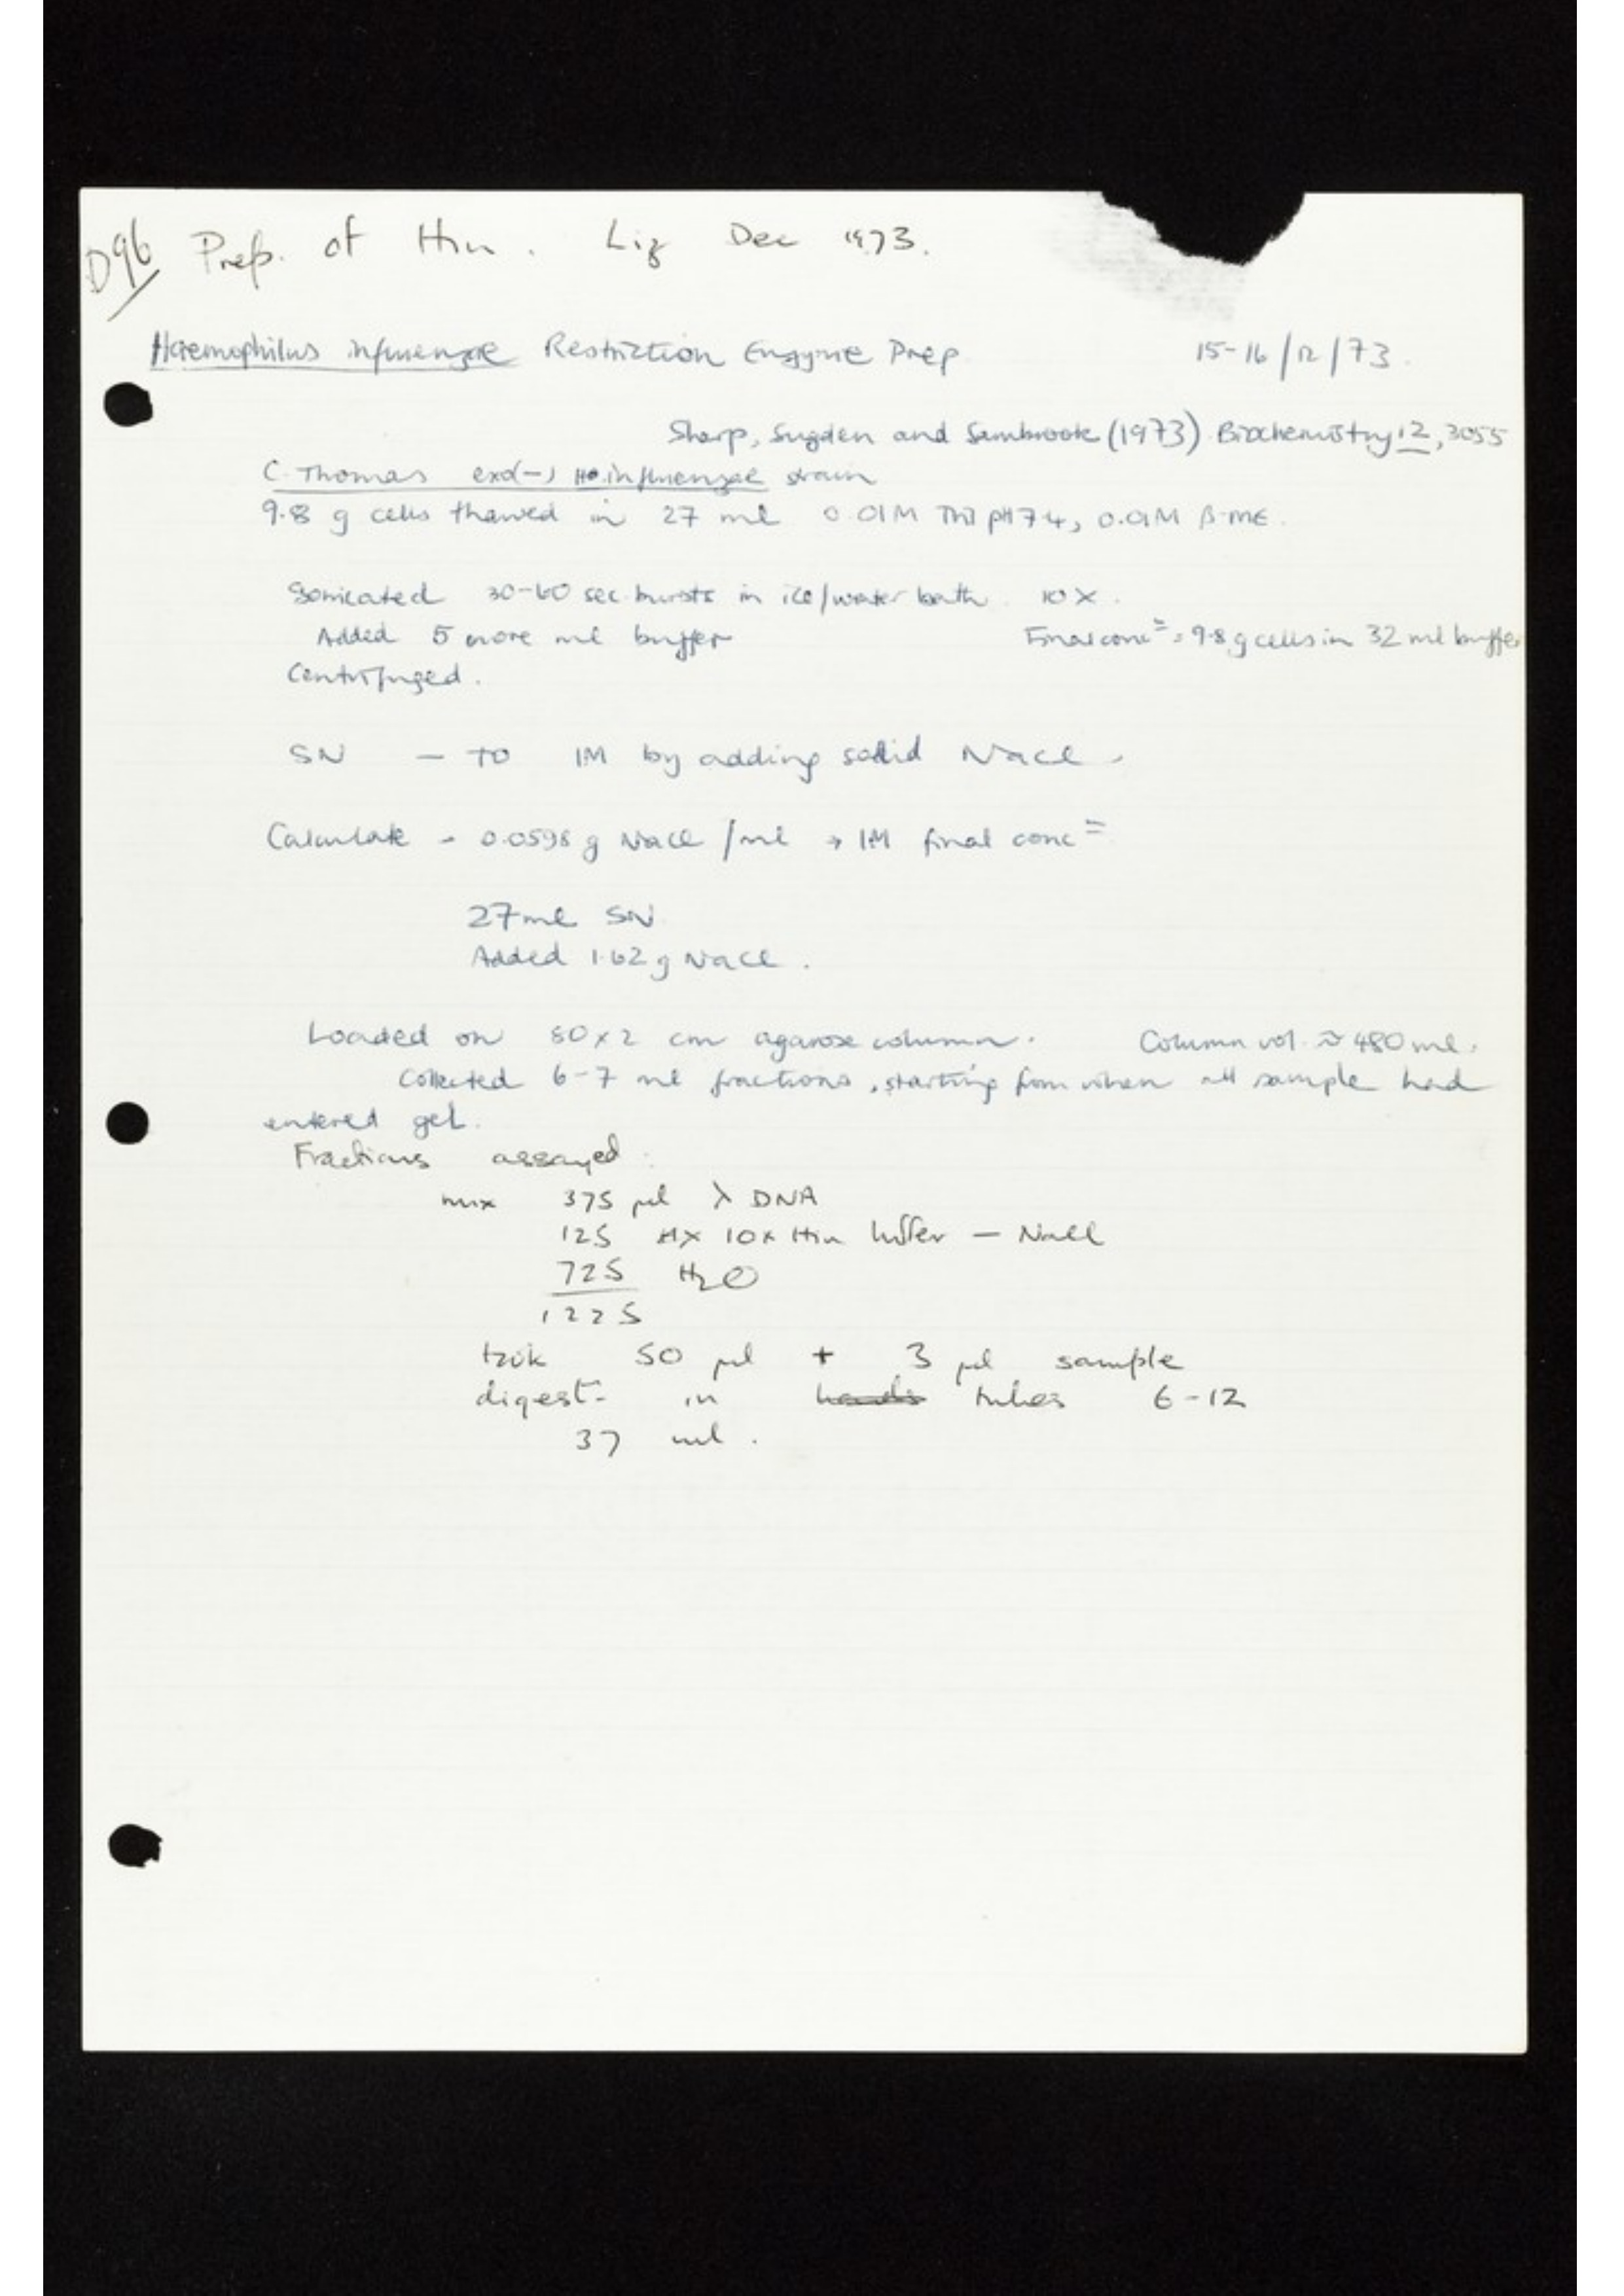 D96 Prep. of Hin. Liz Dec 1973.
Haemophilus influenzae Restriction Enzyme Prep 15-16/12/73.
Sharp, Sugden and Sambrook (1973) Biochemistry 12, 3055
C. Thomas exo(-) H. influenzae strain
9.8 g cells thawed in 27 ml 0.01M Tris pH 7.4, 0.01M β-ME.
Sonicated 30-60 sec bursts in ice/water bath. 10X.
Added 5 more ml buffer Final concⁿ = 9.8 g cells in 32 ml buffer
Centrifuged.
SN — TO 1M by adding solid NaCl.
Calculate - 0.0598 g NaCl /ml → 1M final concⁿ
27ml SN
Added 1.62 g NaCl.
Loaded on 80 x 2 cm agarose column. Column vol. ≈ 480 ml.
Collected 6-7 ml fractions, starting from when all sample had
entered gel.
Fractions assayed:
mix 375 µl λ DNA
125 10x Hin buffer — NaCl
725 H₂O
1225
took 50 µl + 3 µl sample
digest in tubes 6-12
37